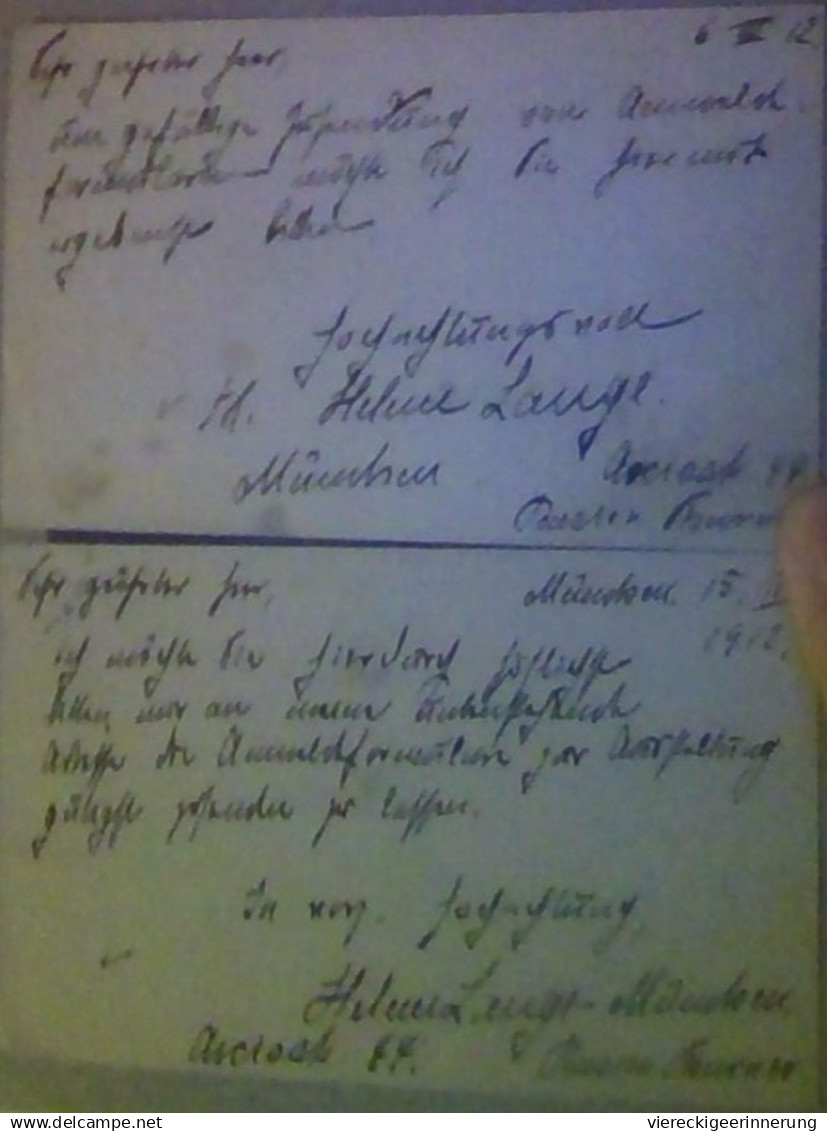 6 III 12
Sehr geehrter Herr,
Um gefällige Zusendung von Anmelde-
formularen möchte ich Sie hiermit
ergebenst bitten
Hochachtungsvoll
Helene Lange.
München
Pension
Sehr geehrter Herr,
München. 15.
1912.
ich möchte Sie hierdurch höflichst
bitten, mir an meine untenstehende
Adresse die Anmeldeformulare zur Ausstellung
gütigst zusenden zu lassen.
In vorz. Hochachtung,
Helene Lange - München
Pension
www.delcampe.net
viereckigeerinnerung